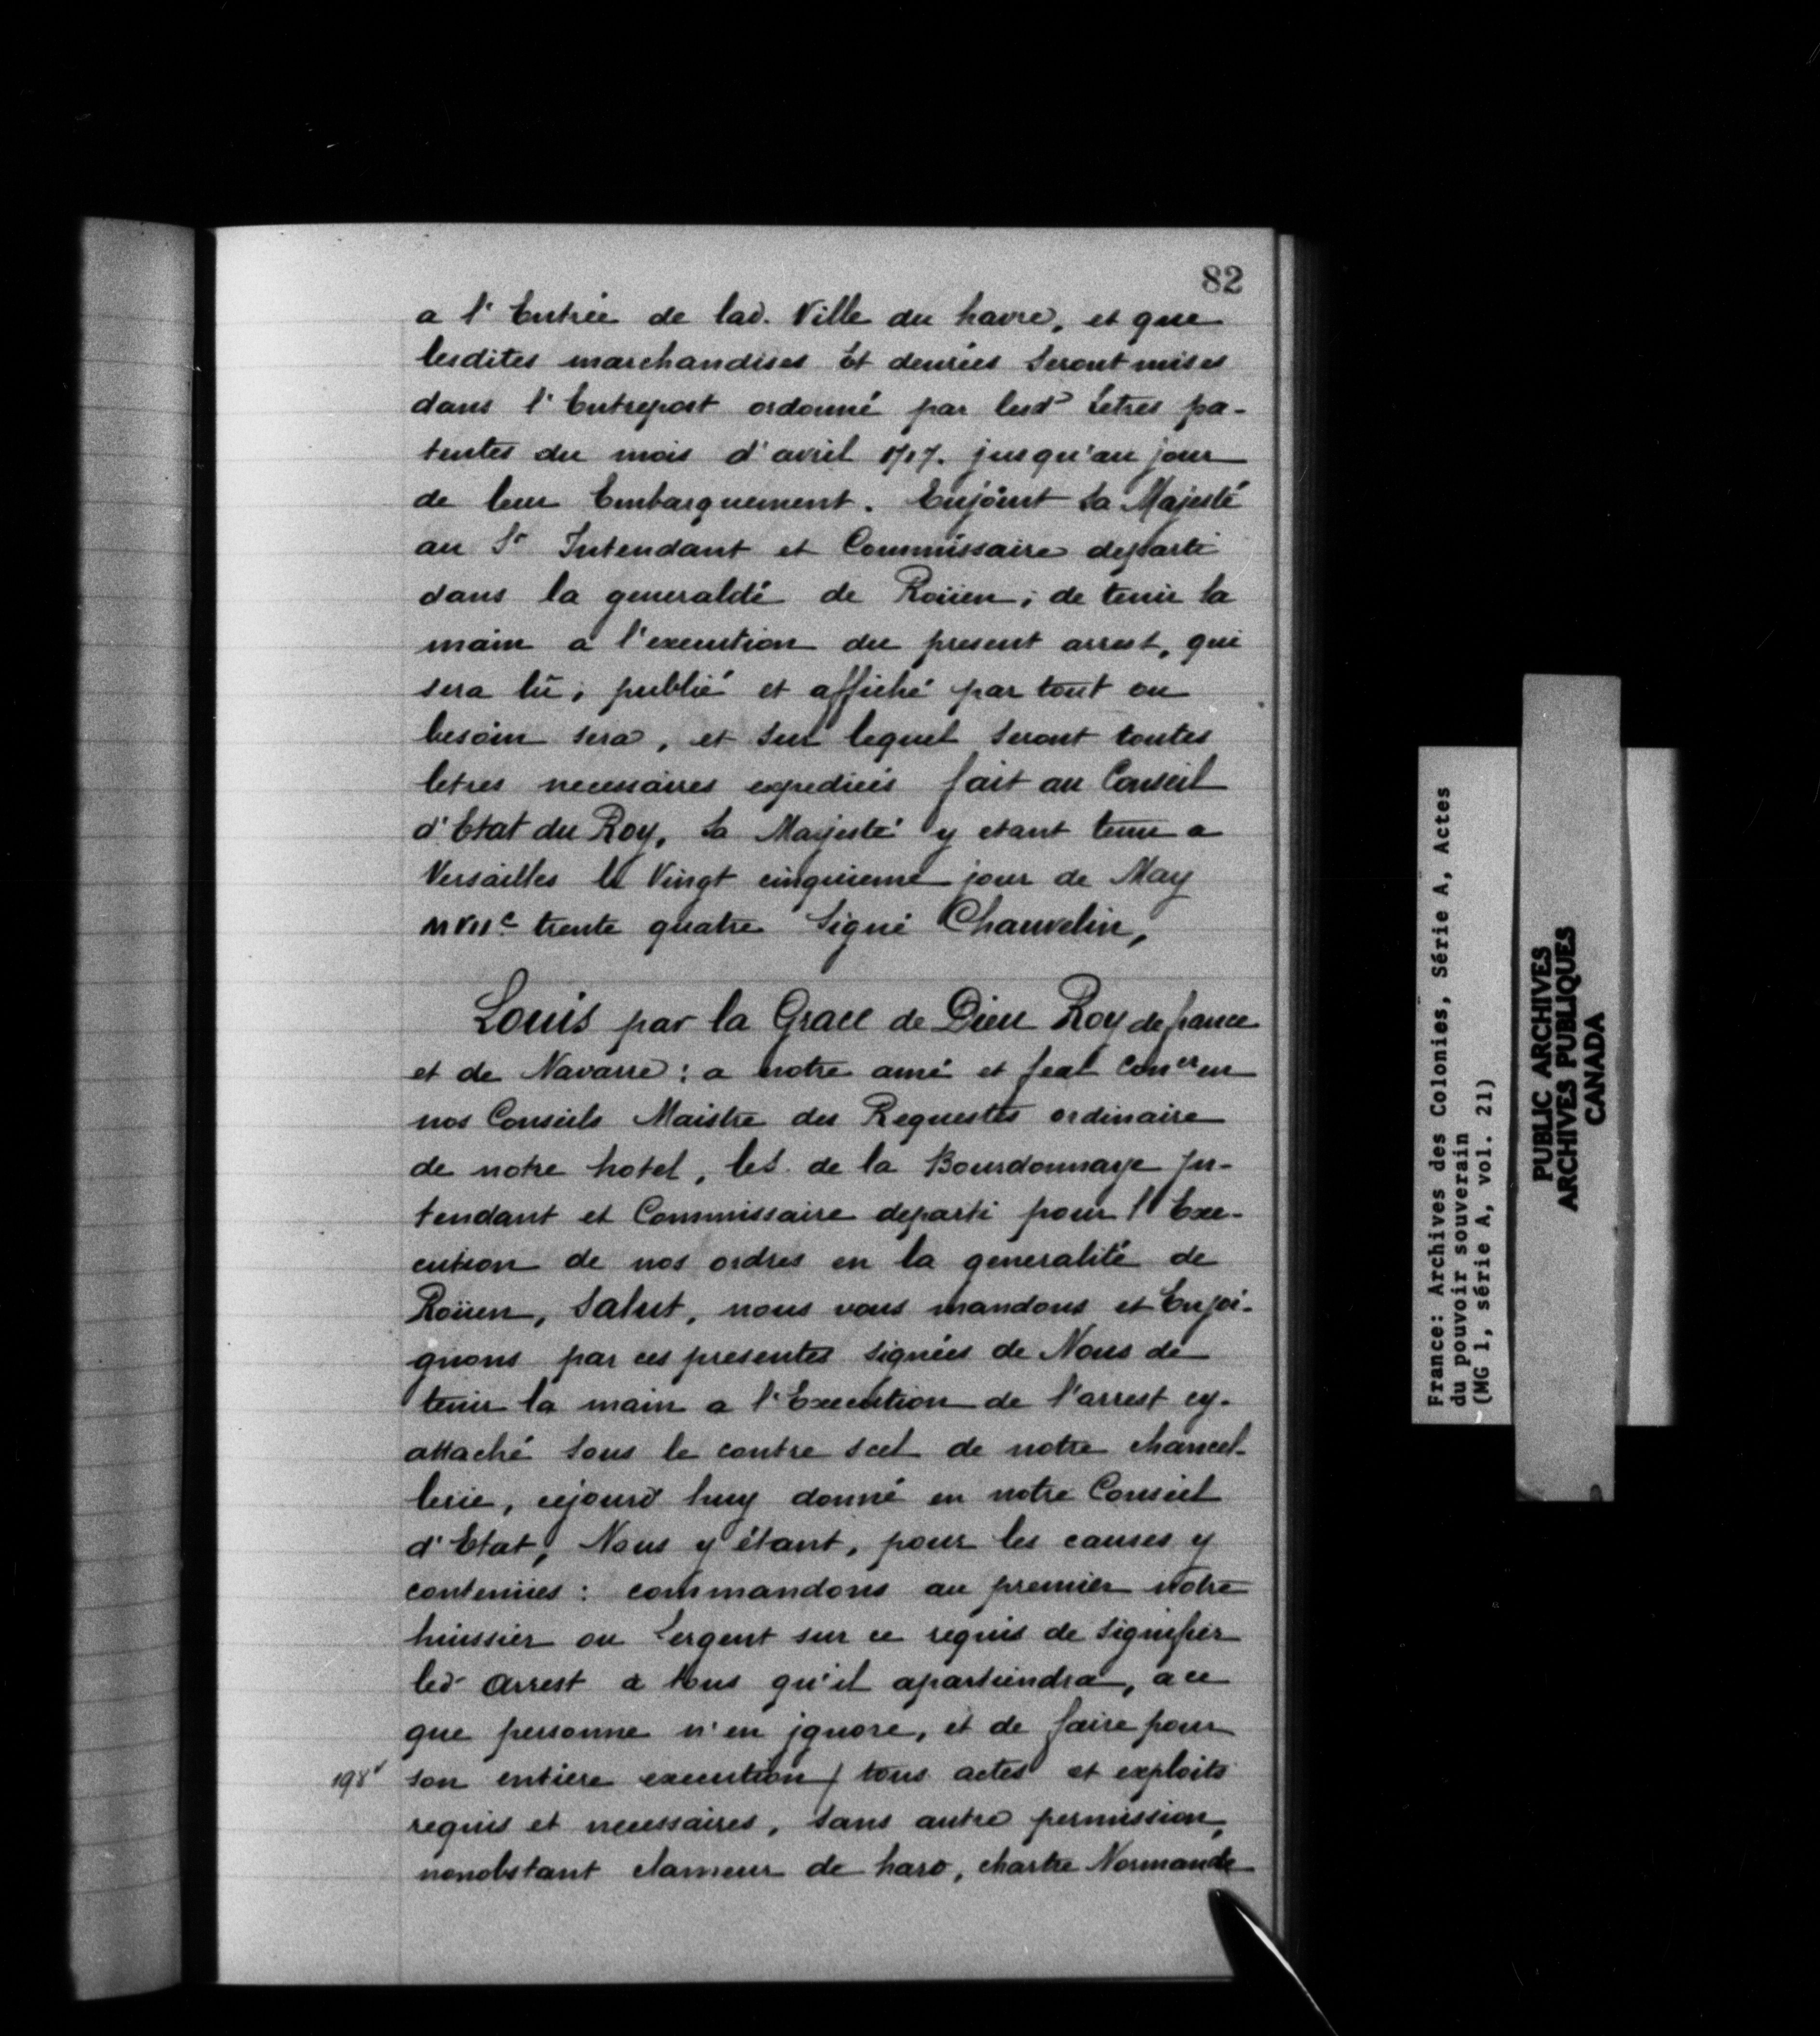 82
a l'Entrée de lad. Ville du havre, et que
lesdites marchandises Et denrées Seront mises
dans l'Entrepost ordonné par lesd. Letres pa-
tentes du mois d'avril 1717. jusqu'au jour
de leur Embarquement. Enjoint Sa Majesté
au Sr Intendant et Commissaire departi
dans la generalité de Roüen; de tenir la
main a l'execution du present arrest, qui
sera lû; publié et affiché par tout ou
besoin sera, et Sur lequel Seront toutes
letres necessaires expediées fait au Conseil
d'Etat du Roy, Sa Majesté y etant tenu a
Versailles le Vingt cinquieme jour de May
MVIIc trente quatre Signé Chauvelin,
Louis par la Grace de Dieu Roy de france
et de Navarre: a notre amé et feal Coner en
nos Conseils Maistre des Requestes ordinaire
de notre hotel, le S. de la Bourdonnaye In-
tendant et Commissaire departi pour l'Exe-
cution de nos ordres en la generalité de
Roüen, Salut, nous vous mandons et Enjoi-
gnons par ces presentes signées de Nous de
tenir la main a l'Execution de l'arrest cy-
attaché Sous le contre scel de notre chancel-
lerie, cejourd huy donné en notre Conseil
d'Etat, Nous y étant, pour les causes y
contenües: commandons au premier notre
huissier ou Sergent sur ce requis de Signifier
led. arrest a tous qu'il apartiendra, a ce
que personne n'en jgnore, et de faire pour
198v son entiere execution / tous actes et exploits
requis et necessaires, Sans autre permission,
nonobstant clameur de haro, chartre Normande
France: Archives des Colonies, Série A, Actes
du pouvoir souverain
(MG 1, série A, vol. 21)
PUBLIC ARCHIVES
ARCHIVES PUBLIQUES
CANADA